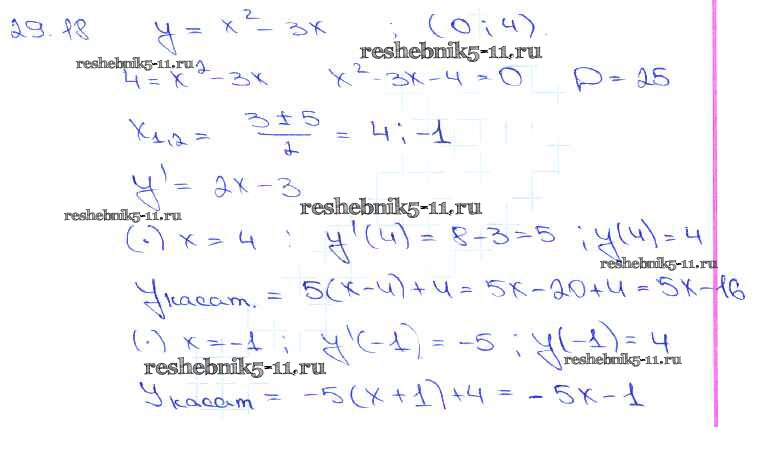 29.18 y = x² - 3x ; (0 ; 4).
reshebnik5-11.ru reshebnik5-11.ru
4 = x² - 3x x² - 3x - 4 = 0 D = 25
x₁,₂ = (3 ± 5)/2 = 4 ; -1
y' = 2x - 3
reshebnik5-11.ru reshebnik5-11.ru
(·) x = 4 : y'(4) = 8 - 3 = 5 ; y(4) = 4
reshebnik5-11.ru
Yкасат. = 5(x - 4) + 4 = 5x - 20 + 4 = 5x - 16
(·) x = -1 ; y'(-1) = -5 ; y(-1) = 4
reshebnik5-11.ru reshebnik5-11.ru
Yкасат = -5(x + 1) + 4 = -5x - 1